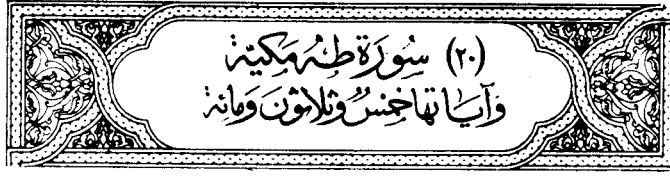 (٢٠) سُورَة طٰهٰ مَكِيَّة
وَآيَاتهَا خَمْسٌ وَثَلاثُونَ وَمائة